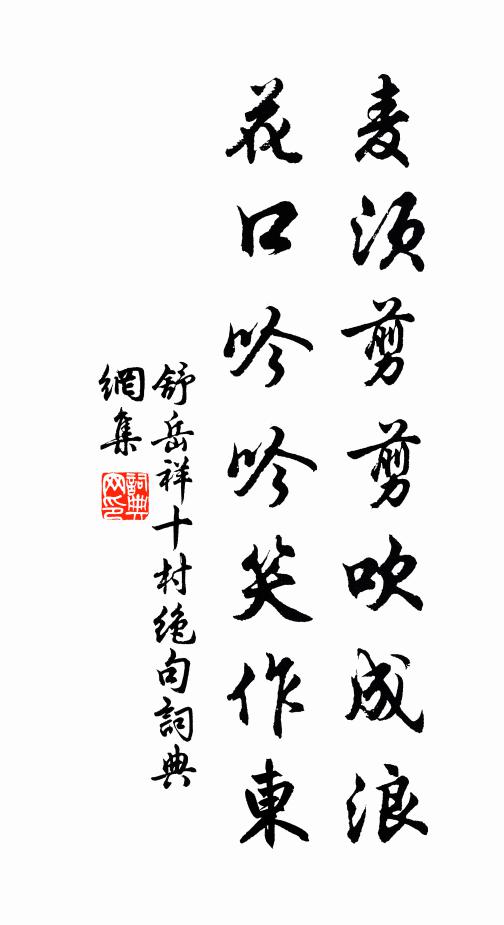 麦须剪剪吹成浪
花口吟吟笑作東
舒岳祥十村绝句詞典
網集
詞典
网印